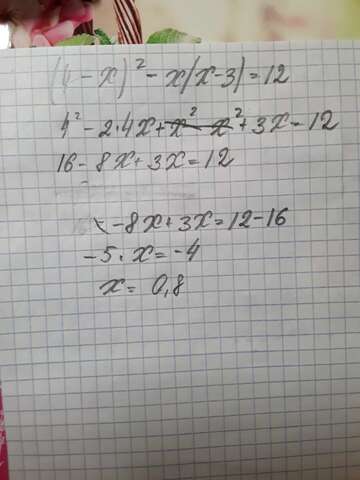 (4-x)² - x(x-3) = 12
4² - 2·4x + x² - x² + 3x = 12
16 - 8x + 3x = 12
-8x + 3x = 12-16
-5·x = -4
x = 0,8